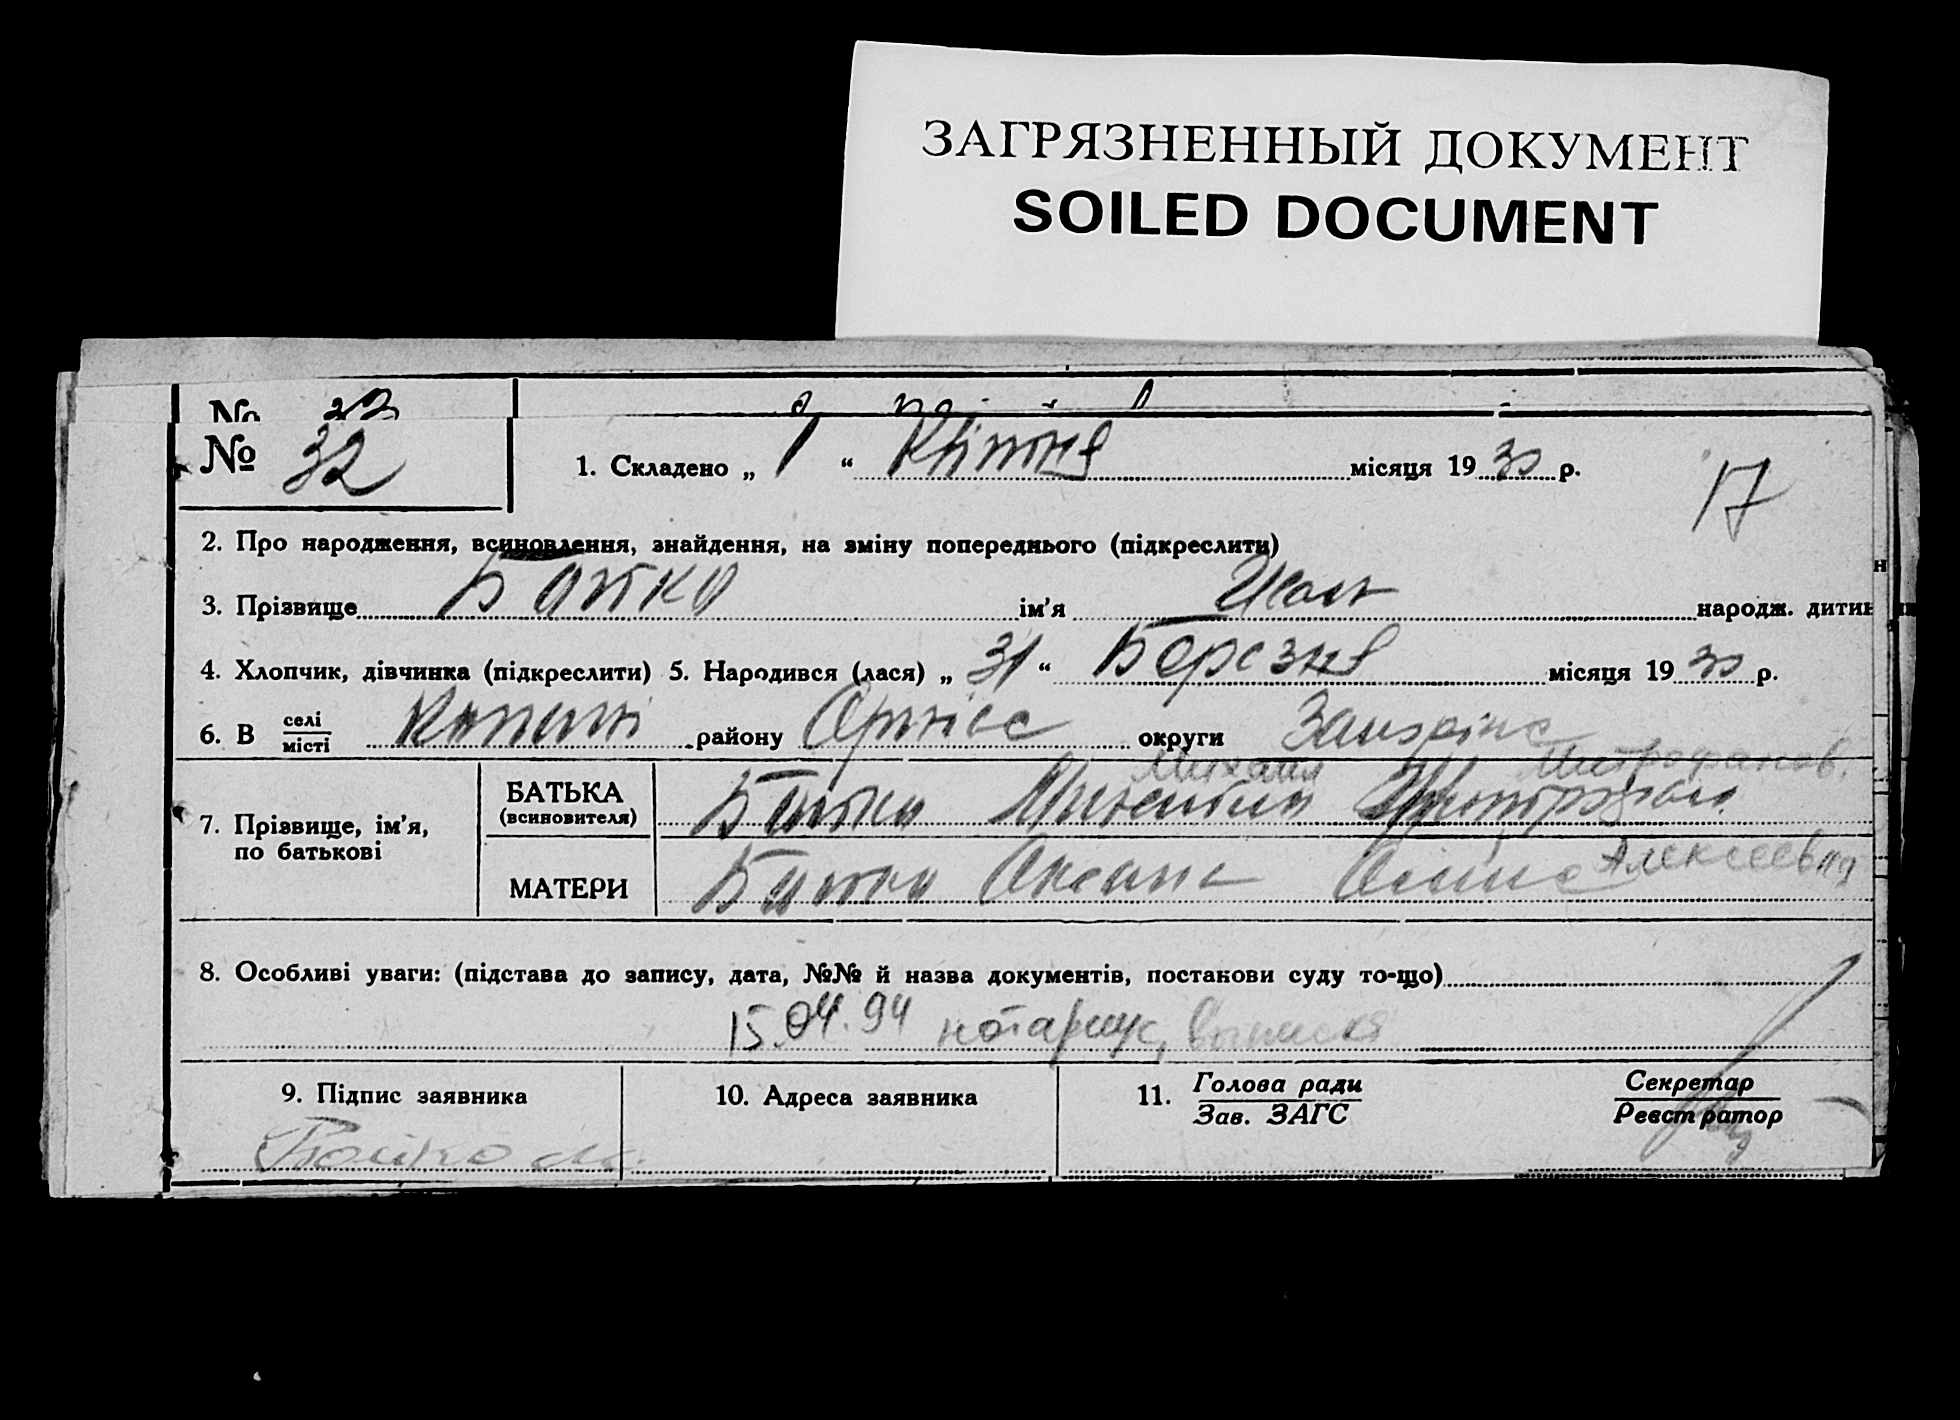 ЗАГРЯЗНЕННЫЙ ДОКУМЕНТ
SOILED DOCUMENT
№
№ 32
1. Складено „ 1 “ Квітня місяця 1930 р.
17
2. Про народження, всиновлення, знайдення, на зміну попереднього (підкреслити)
3. Прізвище Бойко ім’я народж. дитин
4. Хлопчик, дівчинка (підкреслити) 5. Народився (лася) „ 31 “ Березня місяця 1930 р.
6. В селі
місті
Копані району Оріхівс округи Запоріжс
Михаил Митрофанов.
7. Прізвище, ім’я,
по батькові
БАТЬКА
(всиновителя)
Бойко
МАТЕРИ
Бойко Оксана Алексеевна
8. Особливі уваги: (підстава до запису, дата, №№ й назва документів, постанови суду то-що)
15.04.94 нотариус, выписка
9. Підпис заявника
10. Адреса заявника
11. Голова ради
Зав. ЗАГС
Секретар
Реєстратор
Бойко М.